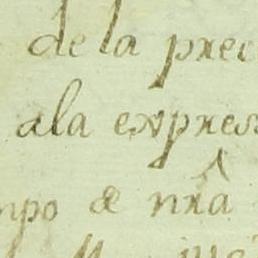 de la prec
ala expres
mpo de nra